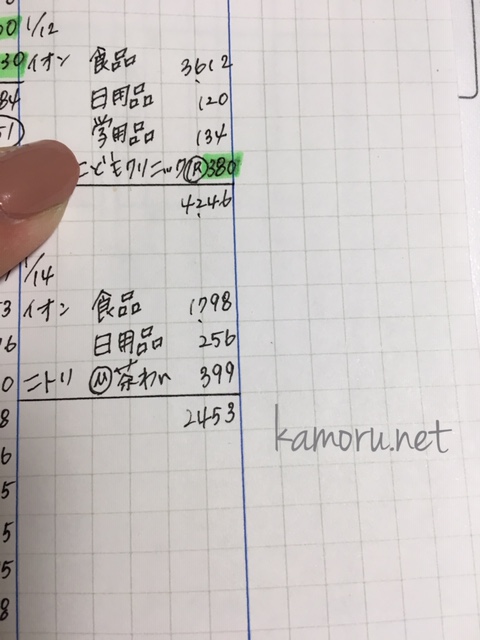 1/12
イオン 食品 3,612
日用品 120
学用品 134
こどもクリニック Ⓡ380
4,246
1/14
イオン 食品 1,798
日用品 256
ニトリ Ⓜ茶わん 399
2453
kamoru.net
30
84
51
3
6
0
8
6
5
5
5
8